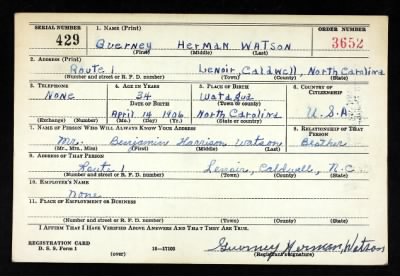 SERIAL NUMBER 1. NAME (Print) ORDER NUMBER
429 Guerney Herman WATSON 3652
(First) (Middle) (Last)
2. ADDRESS (Print)
Route 1 Lenoir, Caldwell, North Carolina
(Number and street or R. F. D. number) (Town) (County) (State)
3. TELEPHONE 4. AGE IN YEARS 5. PLACE OF BIRTH 6. COUNTRY OF CITIZENSHIP
None 34 Watauga
DATE OF BIRTH (Town or county)
April 14 1906 North Carolina U.S.A.
(Exchange) (Number) (Mo.) (Day) (Yr.) (State or country)
7. NAME OF PERSON WHO WILL ALWAYS KNOW YOUR ADDRESS 8. RELATIONSHIP OF THAT PERSON
Mr. Benjamin Harrison Watson Brother
(Mr., Mrs., Miss) (First) (Middle) (Last)
9. ADDRESS OF THAT PERSON
Route 1 Lenoir, Caldwell, N.C.
(Number and street or R. F. D. number) (Town) (County) (State)
10. EMPLOYER'S NAME
None
11. PLACE OF EMPLOYMENT OR BUSINESS
(Number and street or R. F. D. number) (Town) (County) (State)
I AFFIRM THAT I HAVE VERIFIED ABOVE ANSWERS AND THAT THEY ARE TRUE.
REGISTRATION CARD
D. S. S. Form 1 16—17105 Guerney Herman Watson
(over) (Registrant's signature)